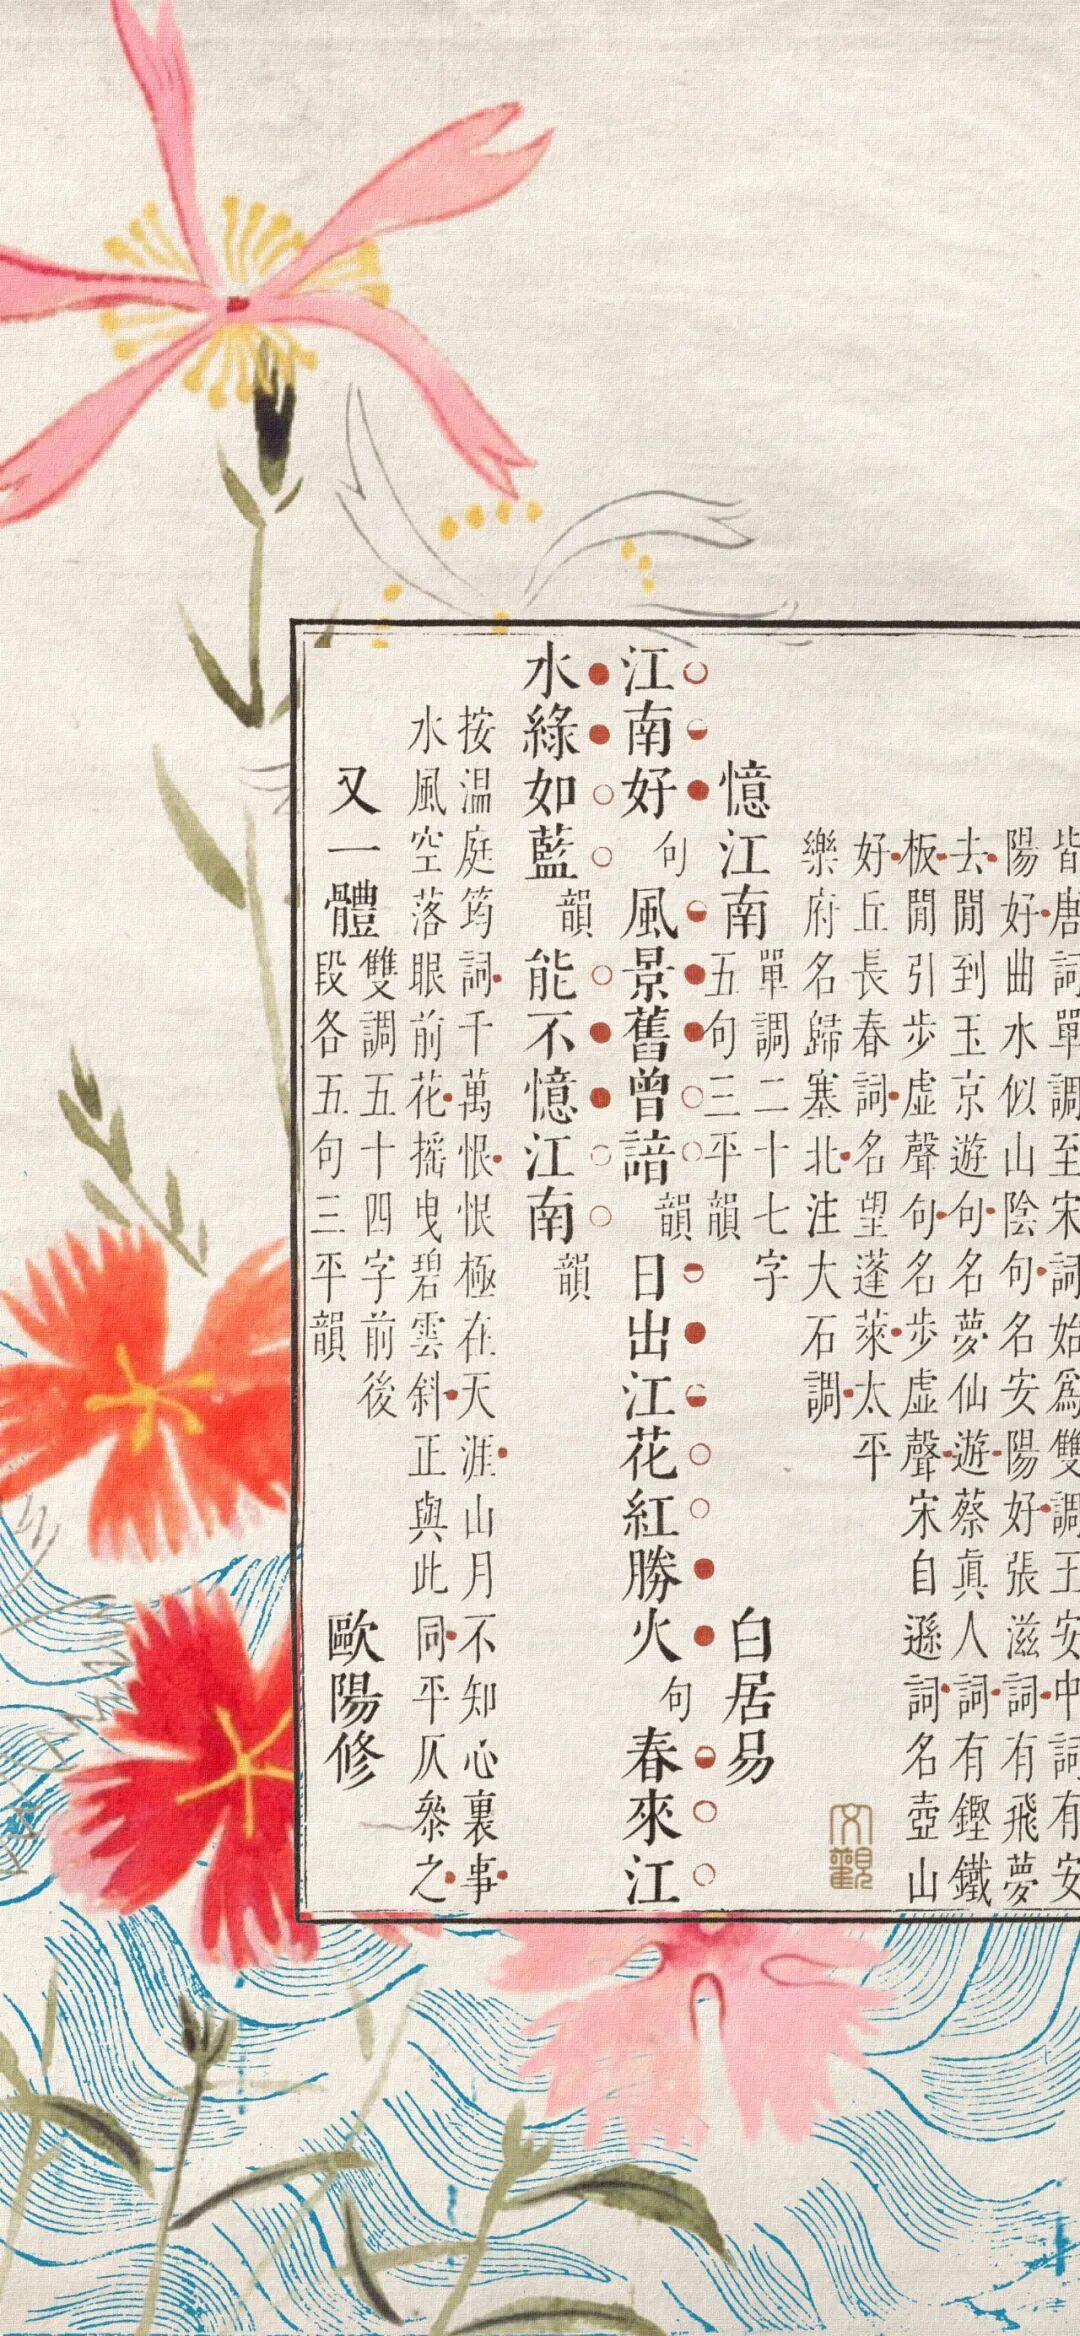 皆唐詞單調至宋詞始爲雙調王安中詞有安
陽好曲水似山陰句名安陽好張滋詞有飛夢
去閒到玉京遊句名夢仙遊蔡真人詞有鏗鐵
板閒引步虛聲句名步虛聲宋自遜詞名壺山
好丘長春詞名望蓬萊太平
樂府名歸塞北注大石調
憶江南
單調二十七字
五句三平韻
白居易
江南好句風景舊曾諳韻日出江花紅勝火句春來江
水綠如藍韻能不憶江南韻
按温庭筠詞千萬恨恨極在天涯山月不知心裏事
水風空落眼前花摇曳碧雲斜正與此同平仄叅之
又一體
雙調五十四字前後
段各五句三平韻
歐陽修
文觀